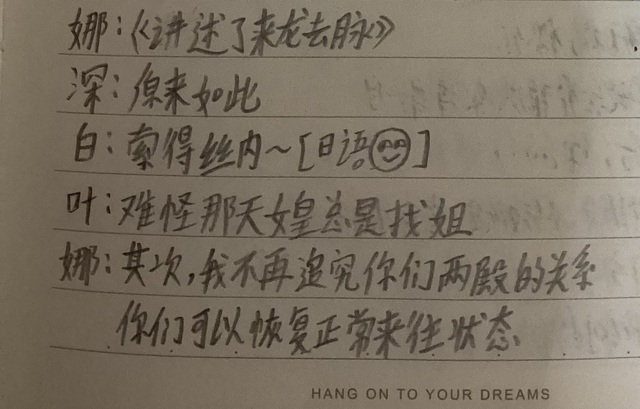 娜:《讲述了来龙去脉》
深:原来如此
白:索得丝内~[日语😊]
叶:难怪那天女皇总是找姐
娜:其次,我不再追究你们两殿的关系
你们可以恢复正常来往状态.
HANG ON TO YOUR DREAMS